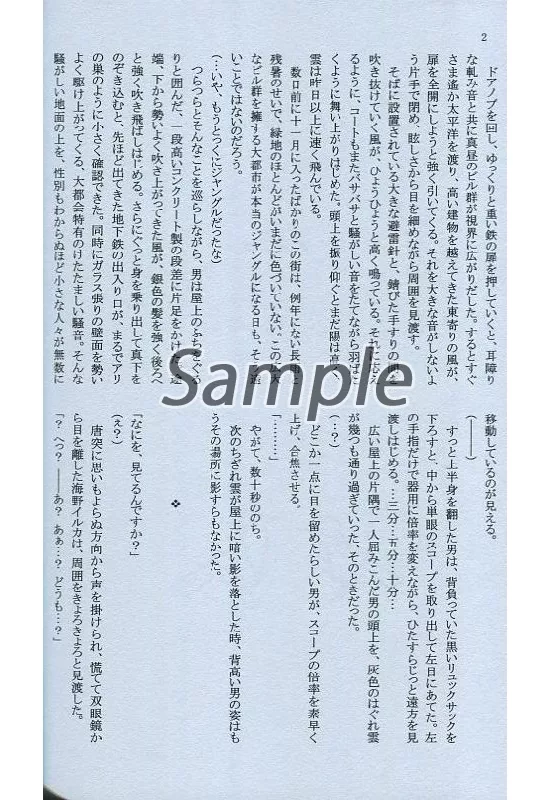 2
ドアノブを回し、ゆっくりと重い鉄の扉を押していくと、耳障り
な軋み音と共に真昼のビル群が視界に広がりだした。するとすぐ
さま遙か太平洋を渡り、高い建物を越えてきた東寄りの風が、
扉を全開にしようと強く引いてくる。それを大きな音がしないよ
う片手で閉め、眩しさから目を細めながら周囲を見渡す。
そばに設置されている大きな避雷針と、錆びた手すりの間を
吹き抜けていく風が、ひょうひょうと高く鳴っている。それに応え
るように、コートもまたバサバサと騒がしい音をたてながら羽ばた
くように舞い上がりはじめた。頭上を振り仰ぐとまだ陽は高く、
雲は昨日以上に速く飛んでいる。
数日前に十一月に入ったばかりのこの街は、例年にない長雨と
残暑のせいで、緑地のほとんどがいまだに色づいていない。この広大
なビル群を擁する大都市が本当のジャングルになる日も、そう遠
いことではないのだろう。
(…いや、もうとっくにジャングルだったな)
つらつらとそんなことを巡らしながら、男は屋上のふちをぐる
りと囲んだ、一段高いコンクリート製の段差に片足をかけた。途
端、下から勢いよく吹き上がってきた風が、銀色の髪を強く後ろへ
と強く吹き飛ばしはじめる。さらにぐっと身を乗り出して真下を
のぞき込むと、先ほど出てきた地下鉄の出入り口が、まるでアリ
の巣のように小さく確認できた。同時にガラス張りの壁面を勢い
よく駆け上がってくる、大都会特有のけたたましい騒音。そんな
騒がしい地面の上を、性別もわからぬほど小さな人々が無数に
移動しているのが見える。
(―――)
すっと上半身を翻した男は、背負っていた黒いリュックサックを
下ろすと、中から単眼のスコープを取り出して左目にあてた。左
の手指だけで器用に倍率を変えながら、ひたすらじっと遠方を見
渡しはじめる。…三分…五分…十分…
広い屋上の片隅で一人屈みこんだ男の頭上を、灰色のはぐれ雲
が幾つも通り過ぎていった、そのときだった。
(…?)
どこか一点に目を留めたらしい男が、スコープの倍率を素早く
上げ、合焦させる。
「………」
やがて、数十秒ののち。
次のちぎれ雲が屋上に暗い影を落とした時、背高い男の姿はも
うその場所に影すらもなかった。
❖
「なにを、見てるんですか?」
(え?)
唐突に思いもよらぬ方向から声を掛けられ、慌てて双眼鏡か
ら目を離した海野イルカは、周囲をきょろきょろと見渡した。
「? へっ? ――あ? あぁ…? どうも…?」
Sample